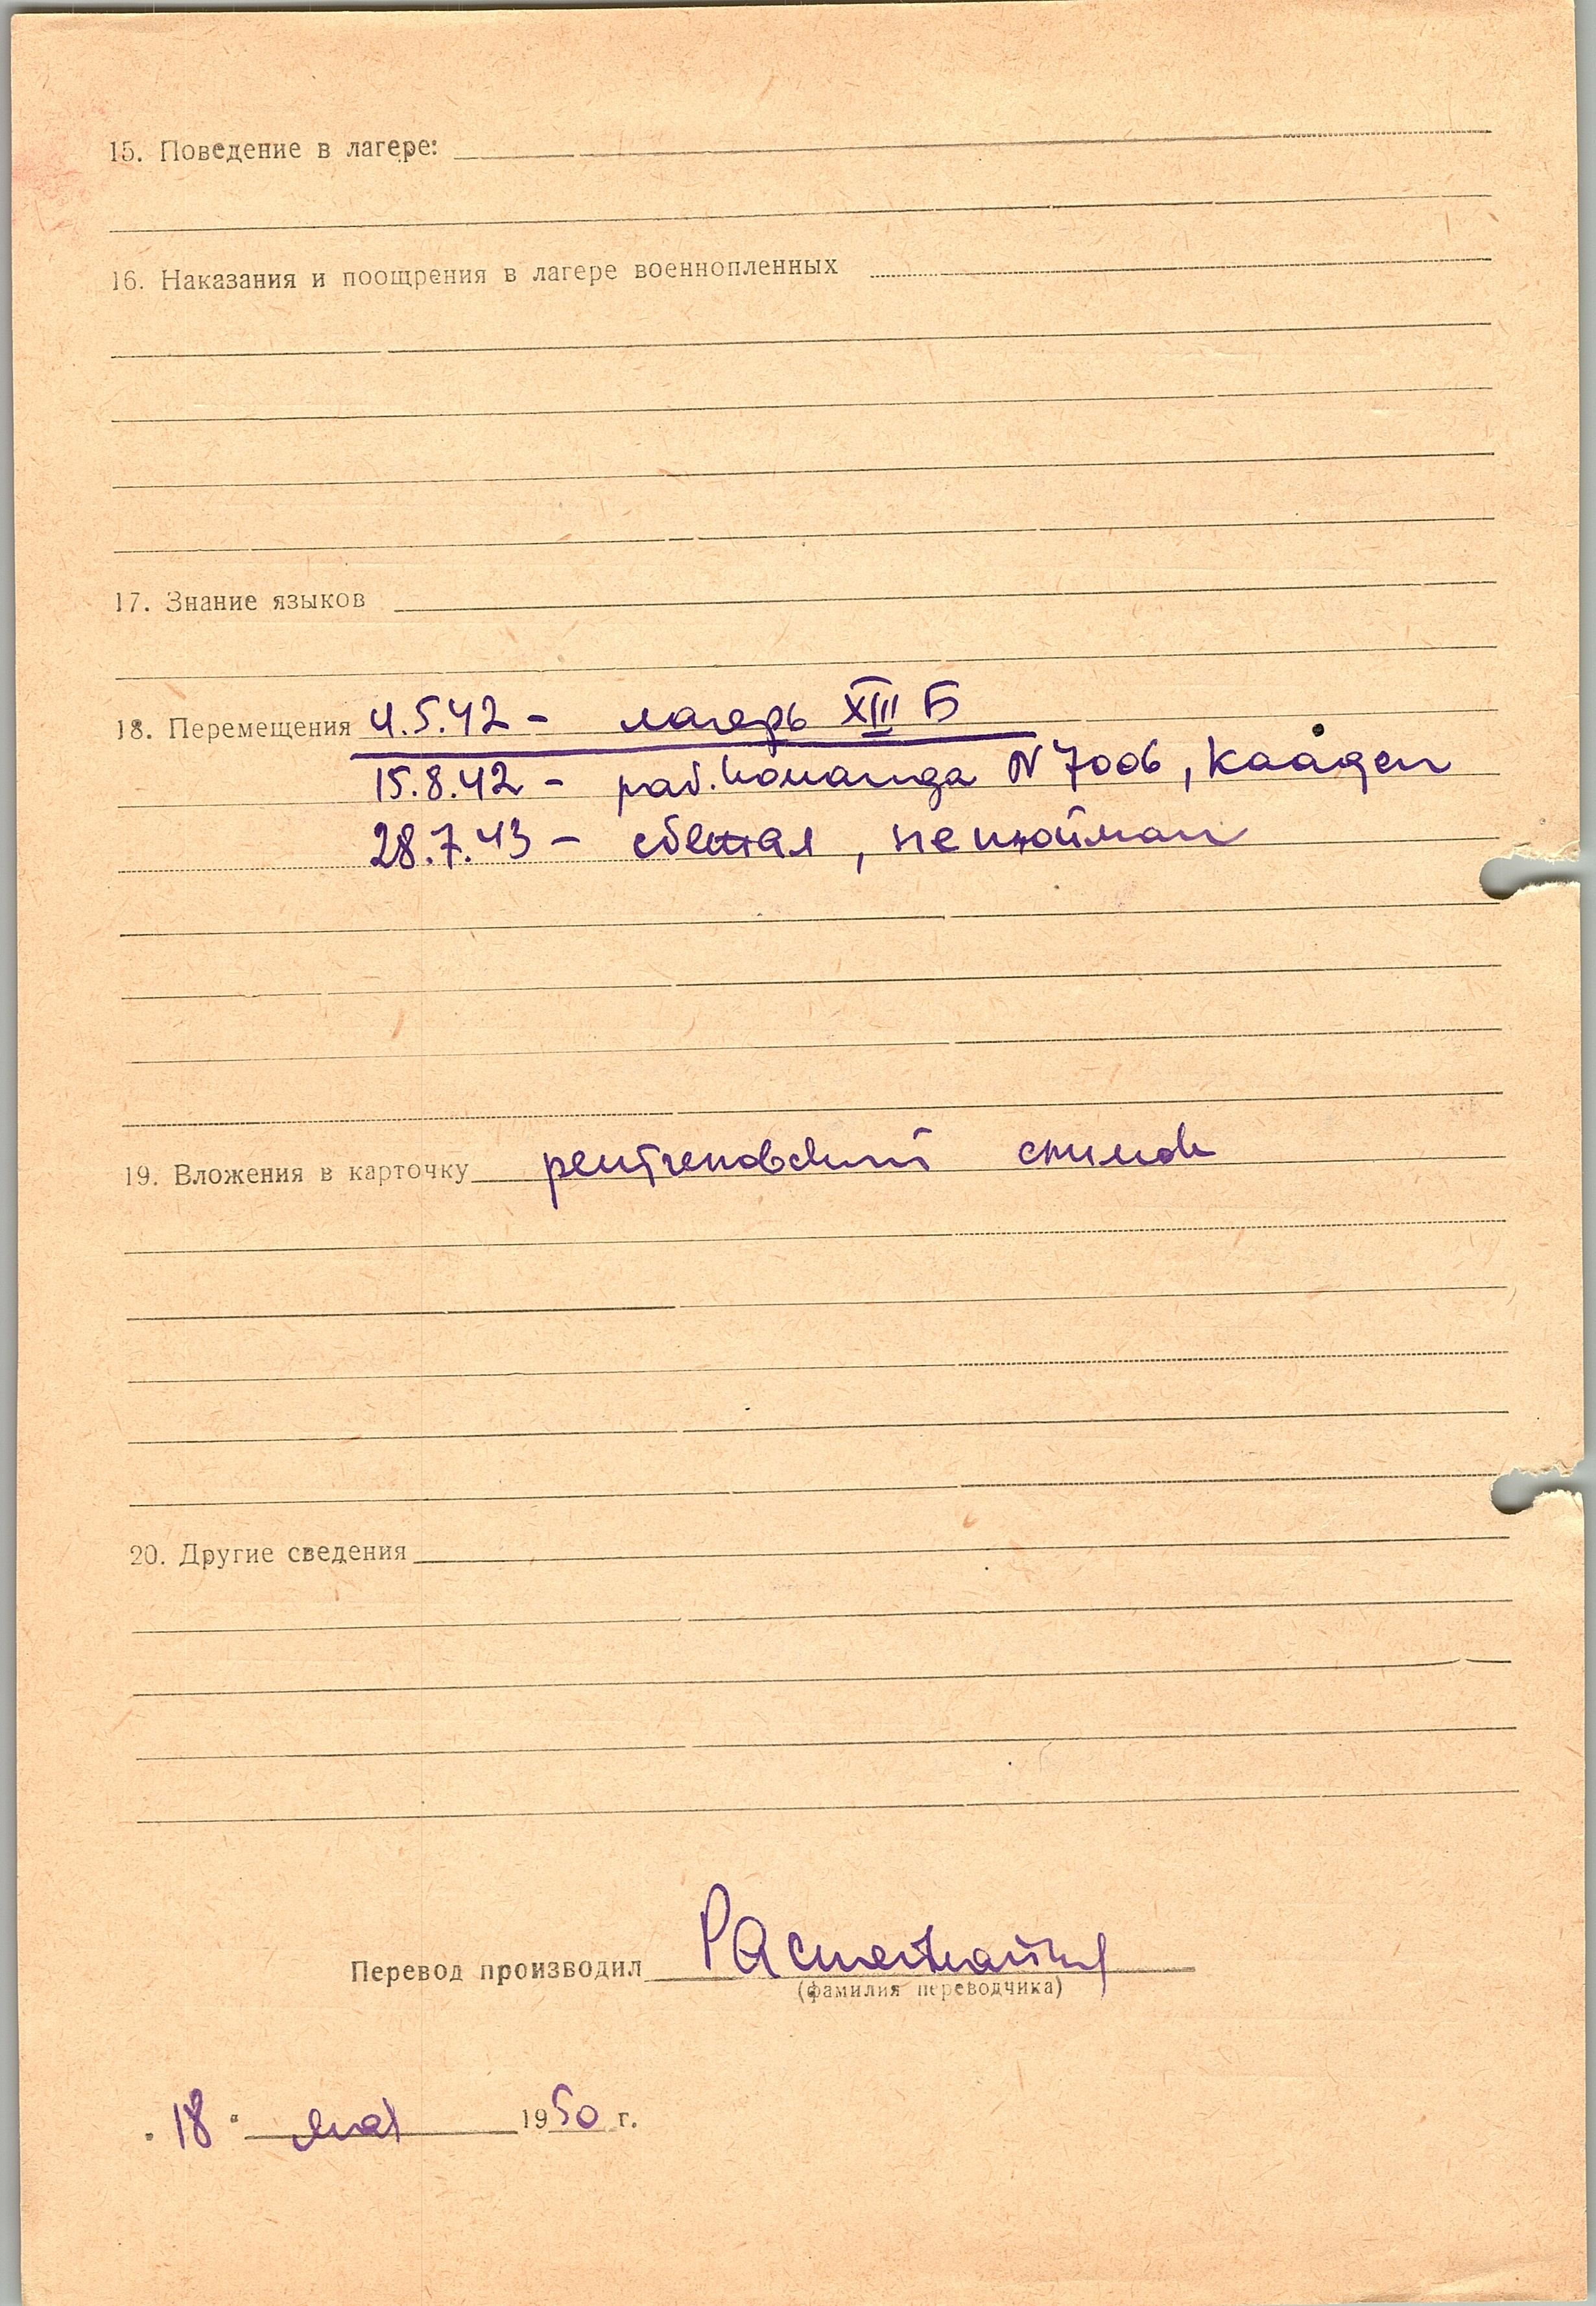 15. Поведение в лагере:
16. Наказания и поощрения в лагере военнопленных
17. Знание языков
18. Перемещения 4.5.42 - лагерь XIII Б
15.8.42 - раб. команда N 7006, Кааден
28.7.43 - сбежал, не пойман
19. Вложения в карточку рентгеновский снимок
20. Другие сведения
Перевод производил
(фамилия переводчика)
"18" мая 1950 г.